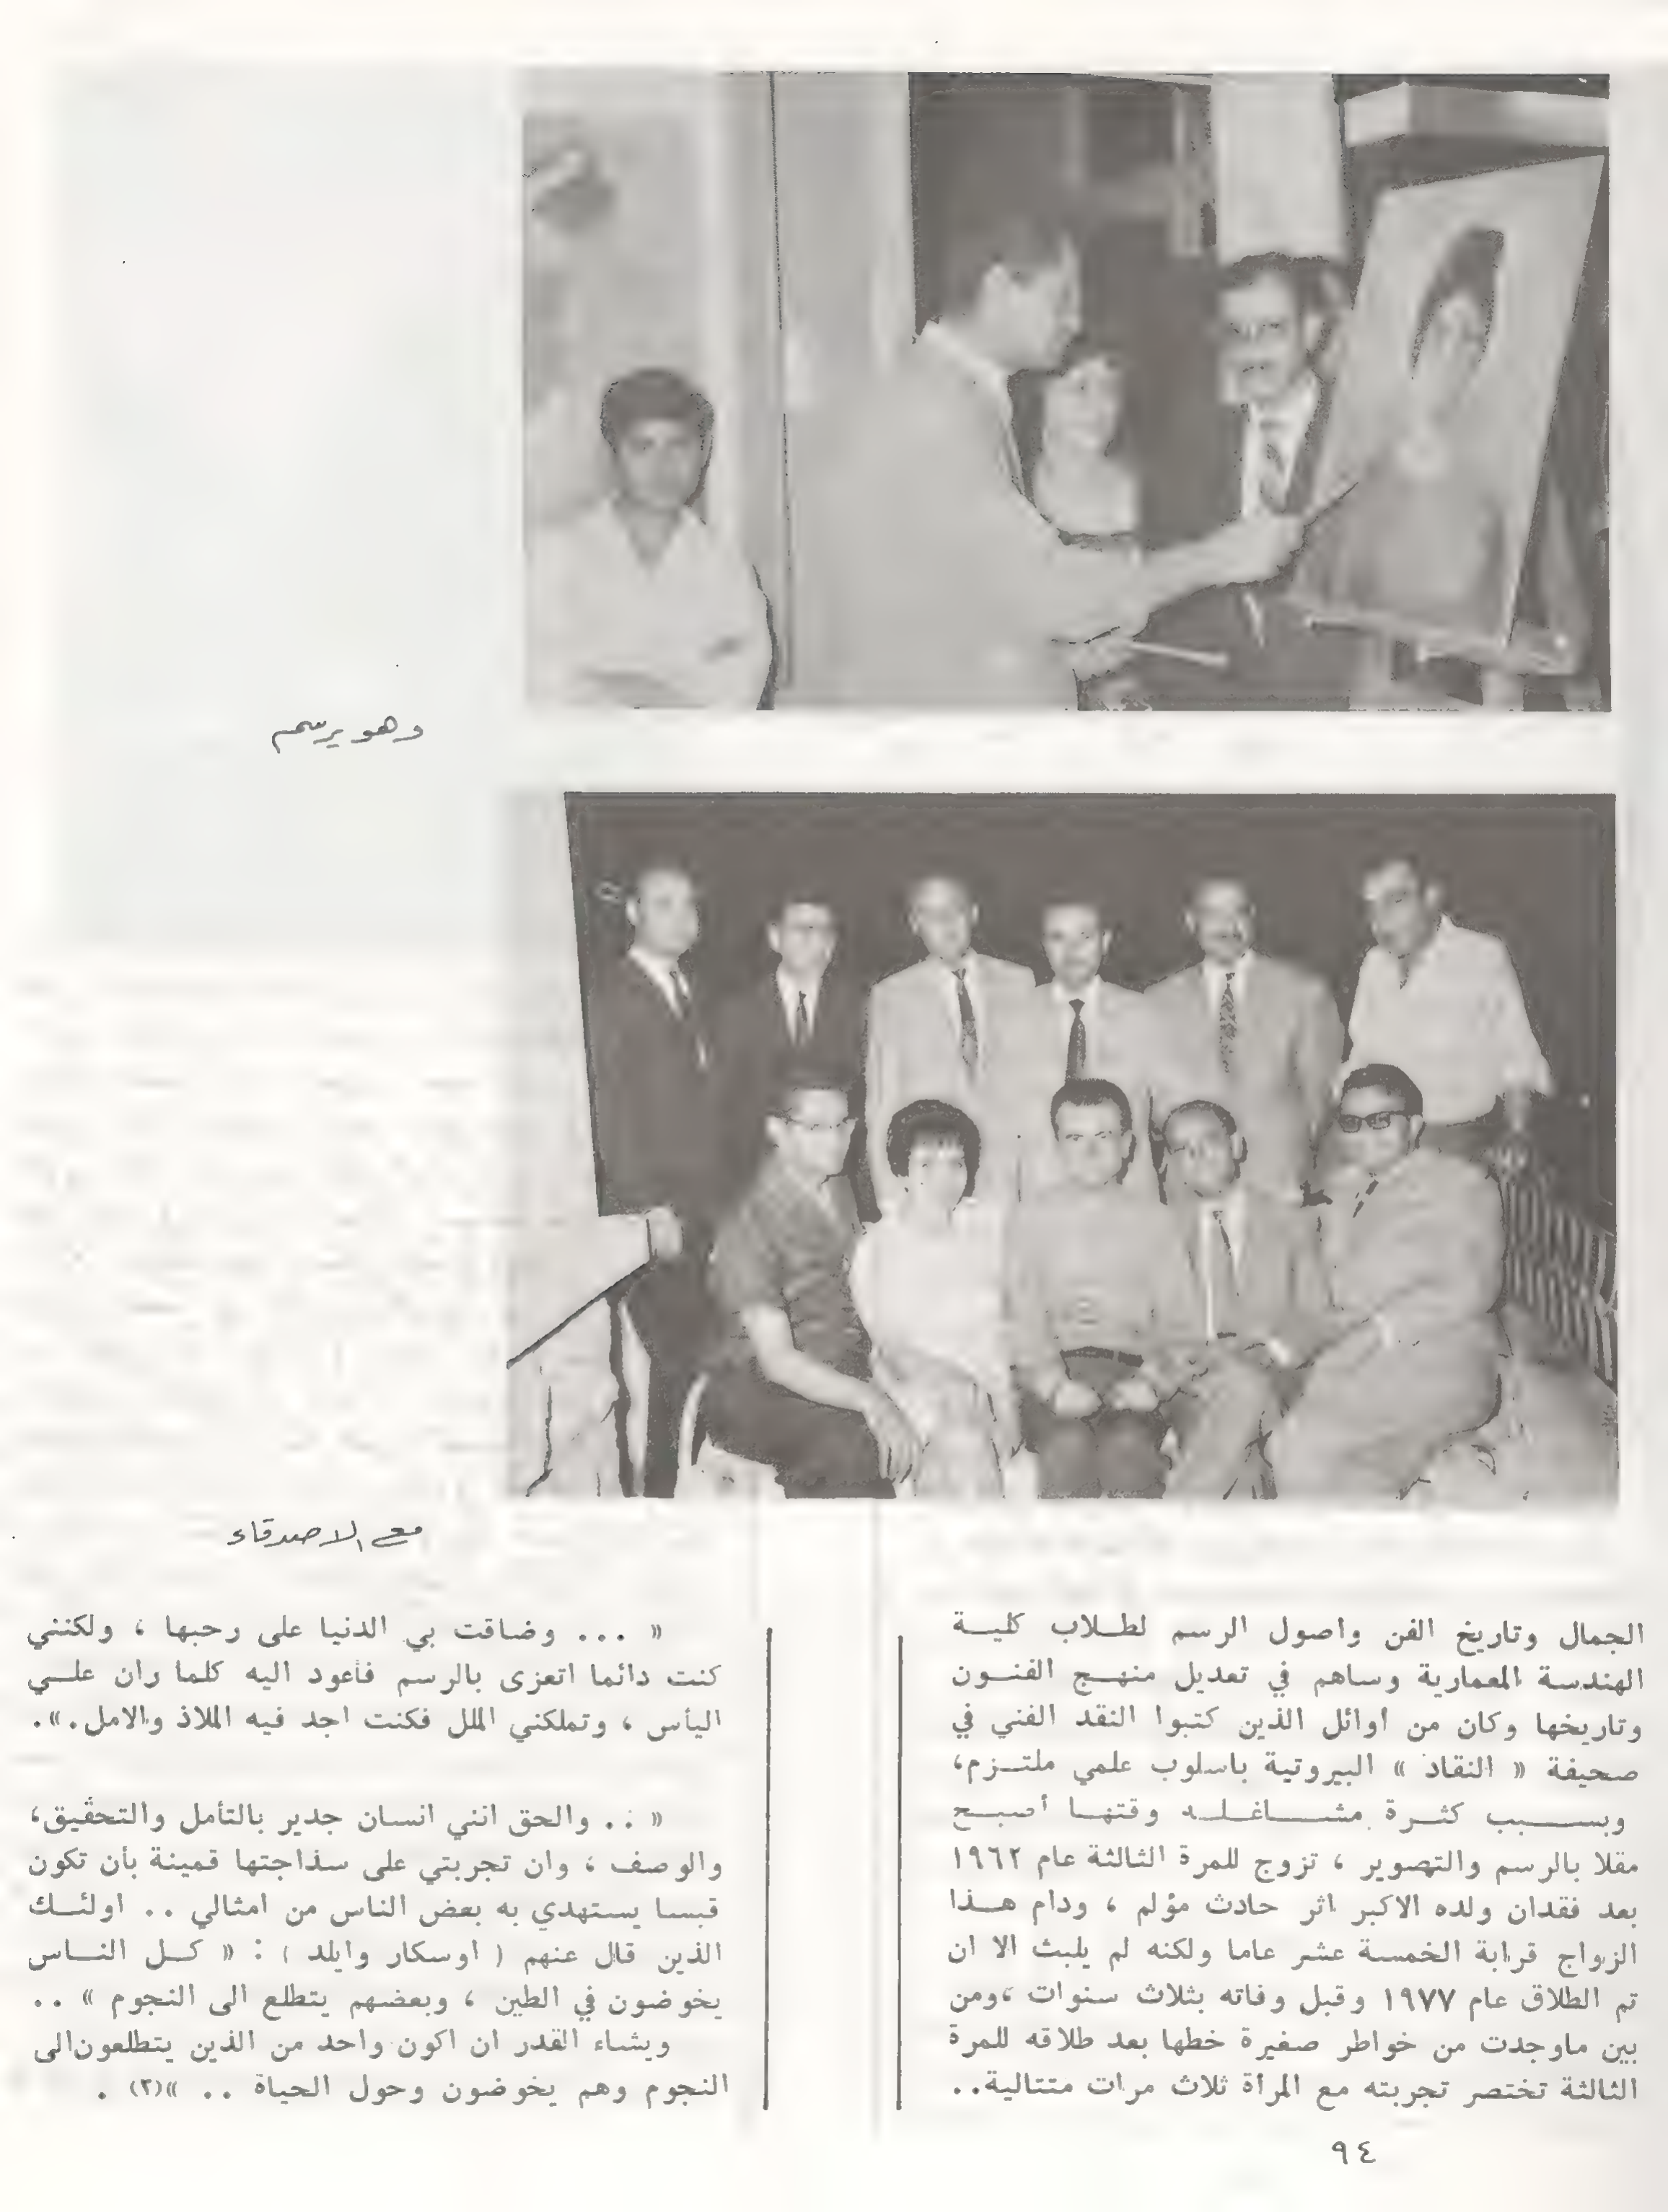 وهو يرسم
مع الاصدقاء
الجمال وتاريخ الفن واصول الرسم لطلاب كلية
الهندسة المعمارية وساهم في تعديل منهج الفنون
وتاريخها وكان من اوائل الذين كتبوا النقد الفني في
صحيفة « النقاد » البيروتية باسلوب علمي ملتزم،
وبسبب كثرة مشاغله وقتها أصبح
مقلا بالرسم والتصوير ، تزوج للمرة الثالثة عام ١٩٦٢
بعد فقدان ولده الاكبر اثر حادث مؤلم ، ودام هذا
الزواج قرابة الخمسة عشر عاما ولكنه لم يلبث الا ان
تم الطلاق عام ١٩٧٧ وقبل وفاته بثلاث سنوات ،ومن
بين ماوجدت من خواطر صغيرة خطها بعد طلاقه للمرة
الثالثة تختصر تجربته مع المرأة ثلاث مرات متتالية..
« ... وضاقت بي الدنيا على رحبها ، ولكنني
كنت دائما اتعزى بالرسم فأعود اليه كلما ران علي
اليأس ، وتملكني الملل فكنت اجد فيه الملاذ والامل.».
« .. والحق انني انسان جدير بالتأمل والتحقيق،
والوصف ، وان تجربتي على سذاجتها قمينة بأن تكون
قبسا يستهدي به بعض الناس من امثالي .. اولئك
الذين قال عنهم ( اوسكار وايلد ) : « كل الناس
يخوضون في الطين ، وبعضهم يتطلع الى النجوم » ..
ويشاء القدر ان اكون واحد من الذين يتطلعون الى
النجوم وهم يخوضون وحول الحياة .. »(٢) .
٩٤